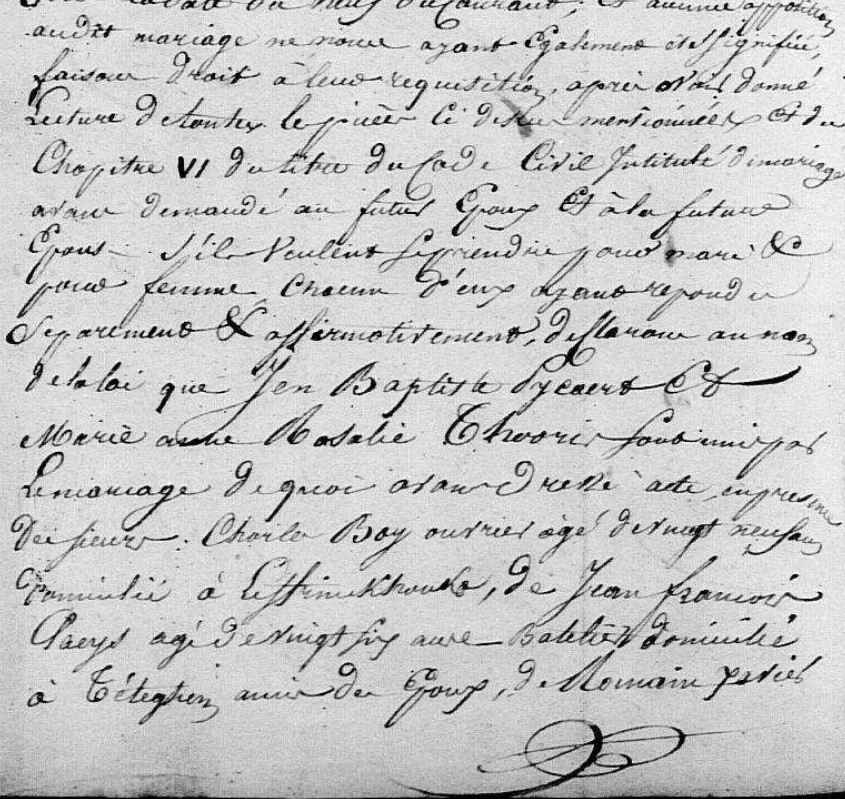 du neuf du Courant, et aucune opposition
audit mariage ne nous ayant Egalement été signifiée,
faisant droit à leur requisition, après avoir donné
Lecture de toutes les pièces Ci dessus mentionnées et du
Chapitre VI du titre du Code Civil Intitulé du mariage
avons demandé au futur Epoux Et à la future
Epouse S'ils veulent se prendre pour mari &
pour femme Chacun d'eux ayant repondu
Separement & affirmativement, declarons au nom
de la loi que Jen Baptiste Lycaert Et
Marie anne Rosalie Thooris sont unis par
Le mariage de quoi avons Dressé acte en presence
Des sieurs. Charles Boy ouvrier agé de vingt neuf ans
Domicilié à Leffrinckhouke, de Jean francois
Claeys agé de vingt six ans Batelier domicilié
à Téteghem amis de Epoux, de Romain